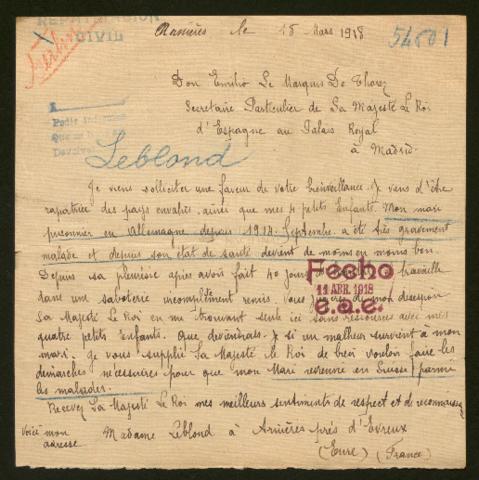 REPATRIACION
CIVIL
Arnières le 15 Mars 1918
54601
Don Emilio Le Marquis De Thorez
Secretaire Particulier de Sa Majesté Le Roi
d'Espagne au Palais Royal
à Madrid.
Leblond
Je viens solliciter une faveur de votre bienveillance Je viens d'être
rapatriée des pays envahis ainsi que mes 4 petits Enfants. Mon mari
prisonnier en Allemagne depuis 1914 Septembre a été très gravement
malade et depuis son état de santé devient de moins en moins bon.
Depuis sa pleurésie après avoir fait 40 jours travaille
dans une saboterie incomplètement remis. Vous jugerez de mon desespoir
Sa Majesté Le Roi en me trouvant seule ici sans ressources avec mes
quatre petits Enfants. Que deviendrais-Je si un malheur survient à mon
mari. Je vous supplie Sa Majesté le Roi de bien vouloir faire les
démarches nécessaires pour que mon Mari revienne en Suisse parmi
les malades.
Fecho
11 ABR. 1918
e.a.e.
Recevez Sa Majesté Le Roi mes meilleurs sentiments de respect et de reconnaissance
Voici mon adresse. Madame Leblond à Arnières près d'Evreux
(Eure) (France)